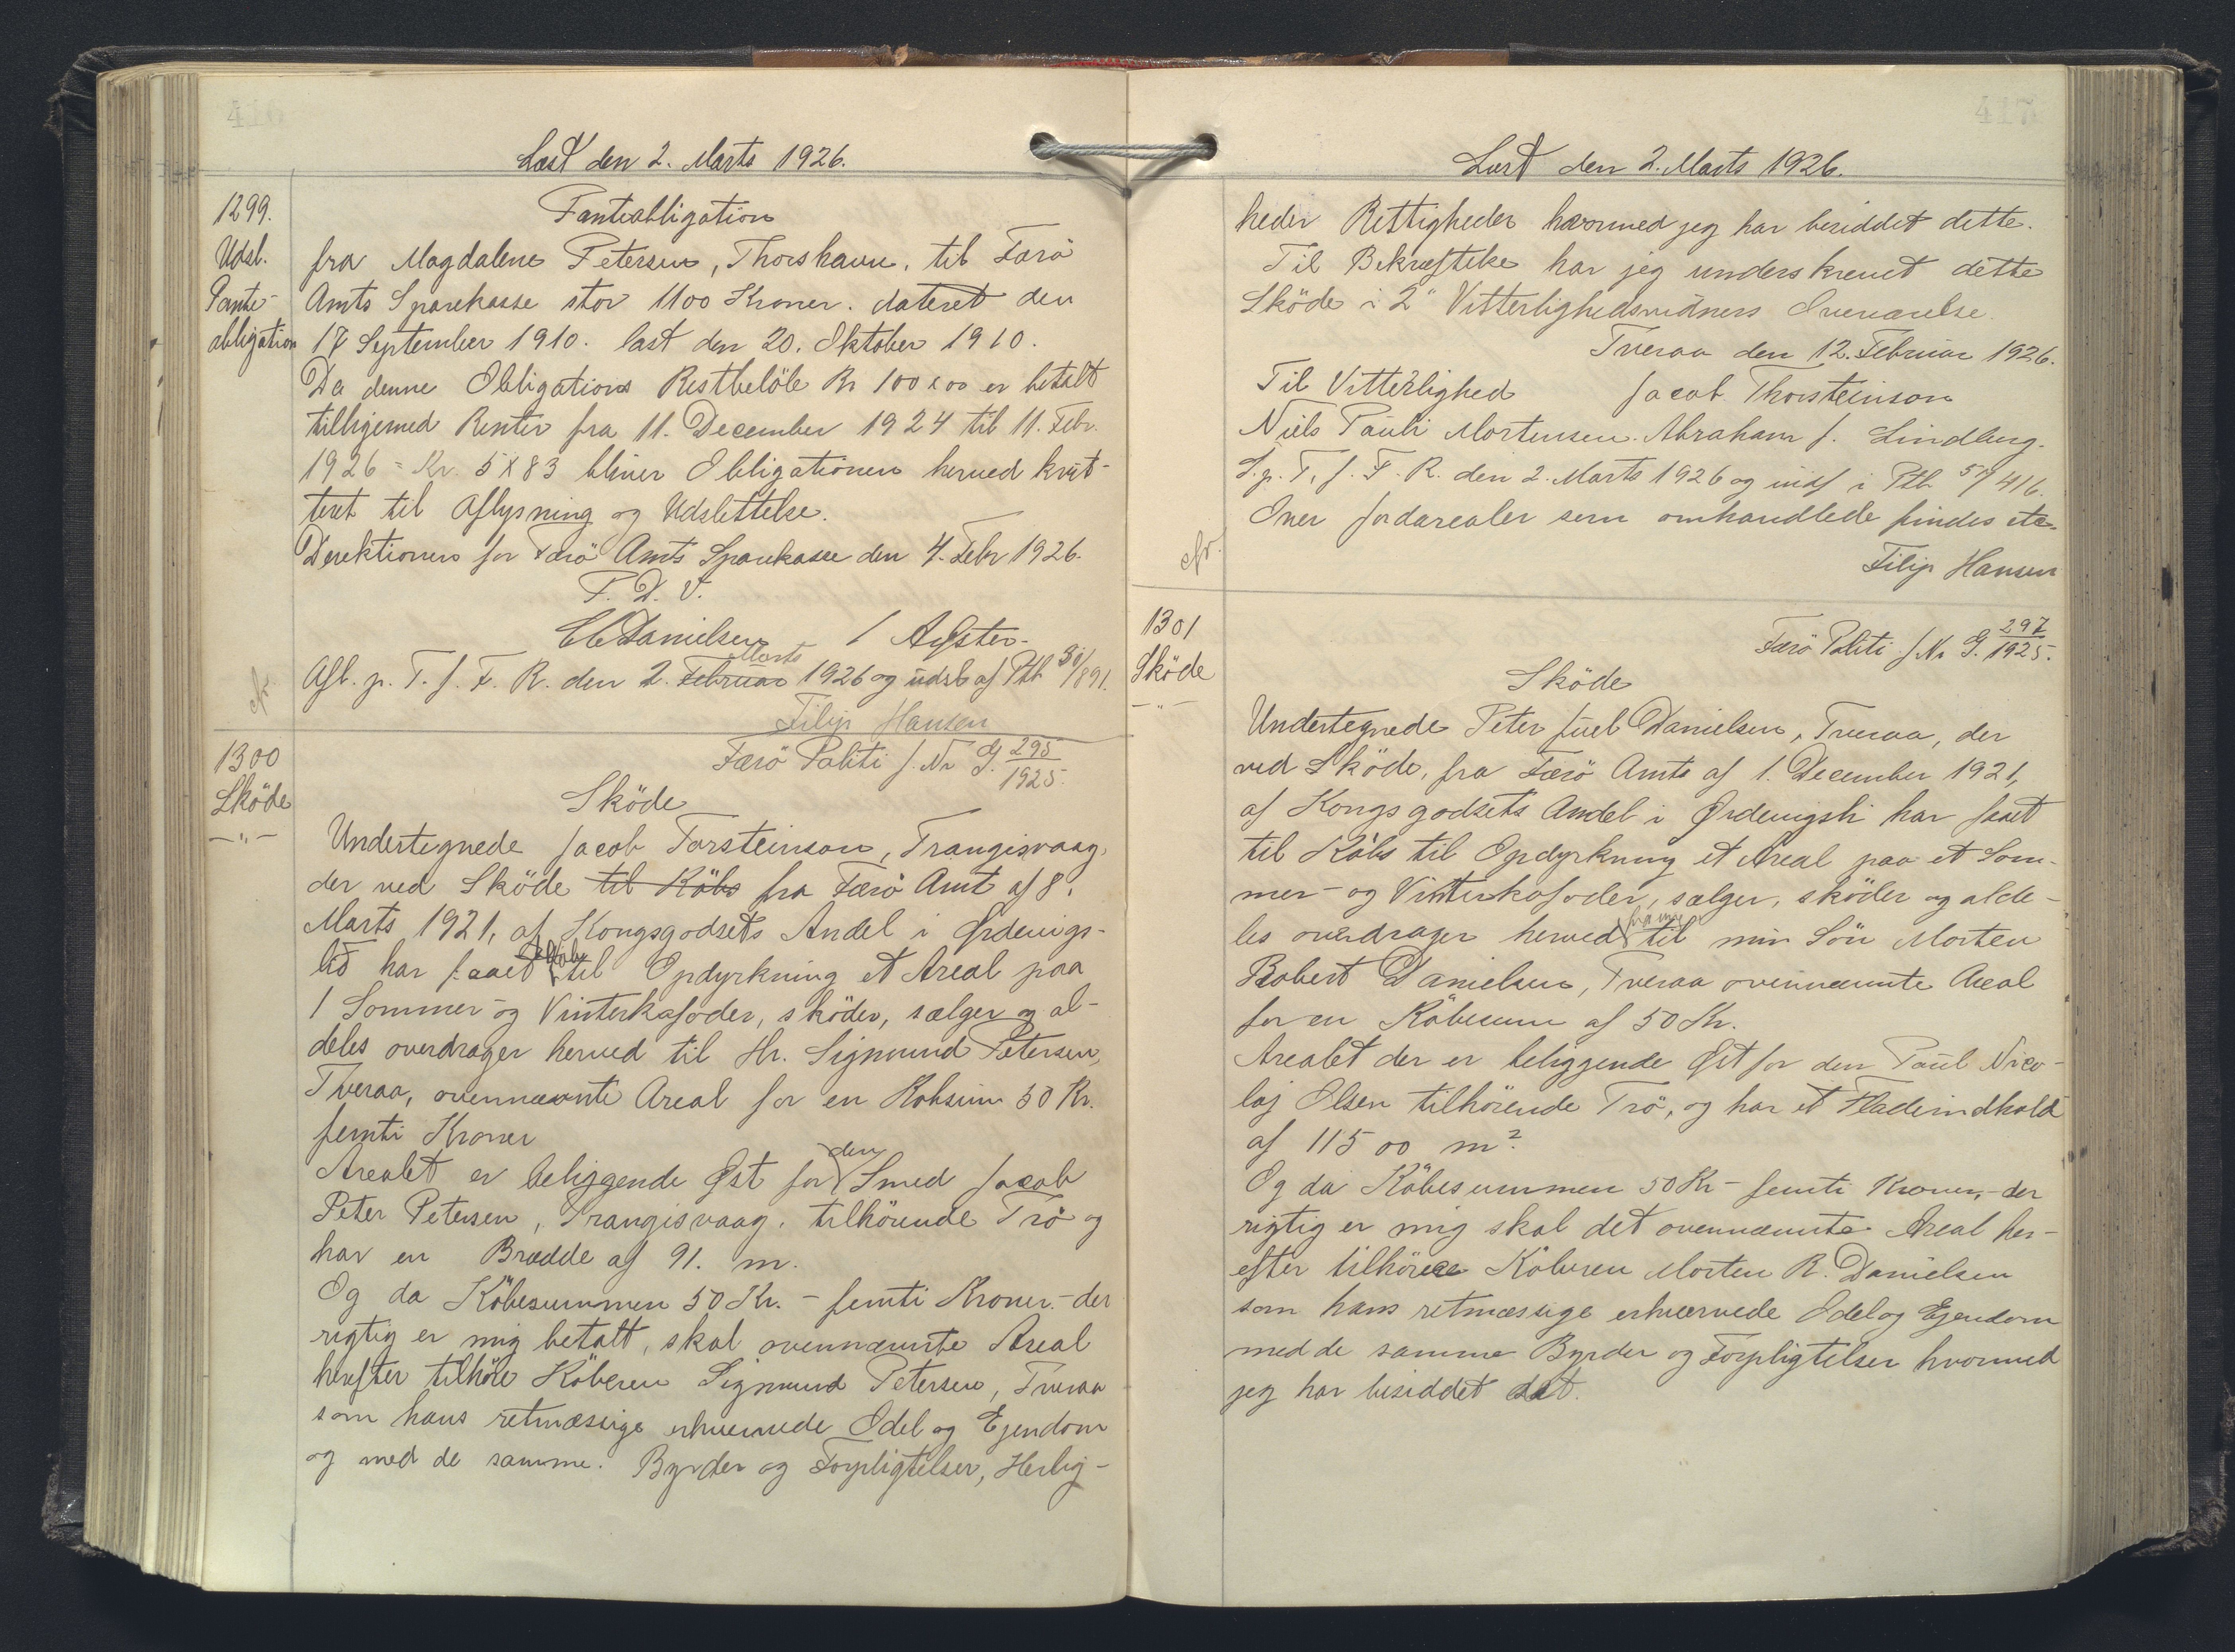 416
Læst den 2. Marts 1926.
1299.
Udsl.
Pante-
obligation
Panteobligation
fra Magdalene Petersen, Thorshavn, til Færö
Amts Sparekasse stor 1100 Kroner. dateret den
17 September 1910. læst den 20. Oktober 1910.
Da denne Obligations Restbelöb Kr 100 x 00 er betalt
tilligemed Renter fra 11. December 1924 til 11. Febr.
1926 = Kr. 5 x 83 bliver Obligationen herved kvit-
teret til Aflysning og Udslettelse.
Direktionen for Færö Amts Sparekasse den 4. Febr 1926.
P. D. V.
C C Danielsen / Agster.
Afl. p. T. f. F. R. den 2. Februar Marts 1926 og udsl af Ptb 31/891.
cfr
Filip Hansen
1300
Sköde
—„—
Færö Politi J. Nr G. 295/1925.
Sköde
Undertegnede Jacob Torsteinson, Trangisvaag,
der ved Sköde til Köbs fra Færö Amt af 8.
Marts 1921, af Kongsgodsets Andel i Ördevigs-
lid har faaet til Köbs til Opdyrkning et Areal paa
1 Sommer- og Vinterkofoder, sköder, sælger og al-
deles overdrager herved til Hr. Sigmund Petersen,
Tveraa, ovennævnte Areal for en Köbsum 50 Kr.
femti Kroner
Arealet er beliggende Öst for den Smed Jacob
Peter Petersen, Trangisvaag, tilhörende Trö og
har en Brædde af 91. m.
Og da Köbesummen 50 Kr. - femti Kroner - der
rigtig er mig betalt, skal ovennævnte Areal
herefter tilhöre Köberen Sigmund Petersen, Tveraa
som hans retmæssige erhvervede Odel og Ejendom
og med de samme. Byrder og Forpligtelser, Herlig-
417
Læst den 2. Marts 1926.
heder Rettigheder hvormed jeg har besiddet dette.
Til Bekræftelse har jeg underskrevet dette
Sköde i 2" Vitterlighedsvidners Overværelse.
Tveraa den 12. Februar 1926.
Til Vitterlighed Jacob Thorsteinson
Niels Pauli Mortensen. Abraham J. Lindberg.
L. p. T. f. F. R. den 2. Marts 1926 og indf i Ptb 57/416.
Over Jordarealer som omhandlede findes etc.
cfr.
Filip Hansen
1301
Sköde
—„—
Færö Politi J Nr G. 297/1925.
Sköde
Undertegnede Peter Juel Danielsen, Tveraa, der
ved Sköde, fra Færö Amts af 1. December 1921,
af Kongsgodsets Andel i Ördevigsli har faaet
til Köbs til Opdyrkning et Areal paa et Som-
mer- og Vinterkofoder, sælger, sköder og alde-
les overdrager herved fra mig til min Sön Morten
Robert Danielsen, Tveraa ovennævnte Areal
for en Köbesum af 50 Kr.
Arealet der er beliggende Öst for den Poul Nico-
laj Olsen tilhörende Trö, og har et Fladeindhold
af 11500 m²
Og da Köbesummen 50 Kr - femti Kroner, - der
rigtig er mig skal det ovennævnte Areal her-
efter tilhörer Köberen Morten R. Danielsen
som hans retmæssige erhvervede Odel og Ejendom
med de samme Byrder og Forpligtelser hvormed
jeg har besiddet det.